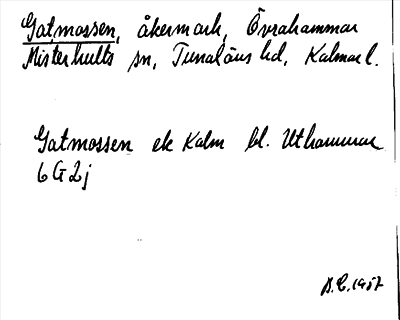 Gatmossen, åkermark, Övrahammar
Misterhults sn, Tunaläns hd, Kalmar l.
Gatmossen ek Kalm bl. Uthammar
6 G 2 j
B.E. 1957